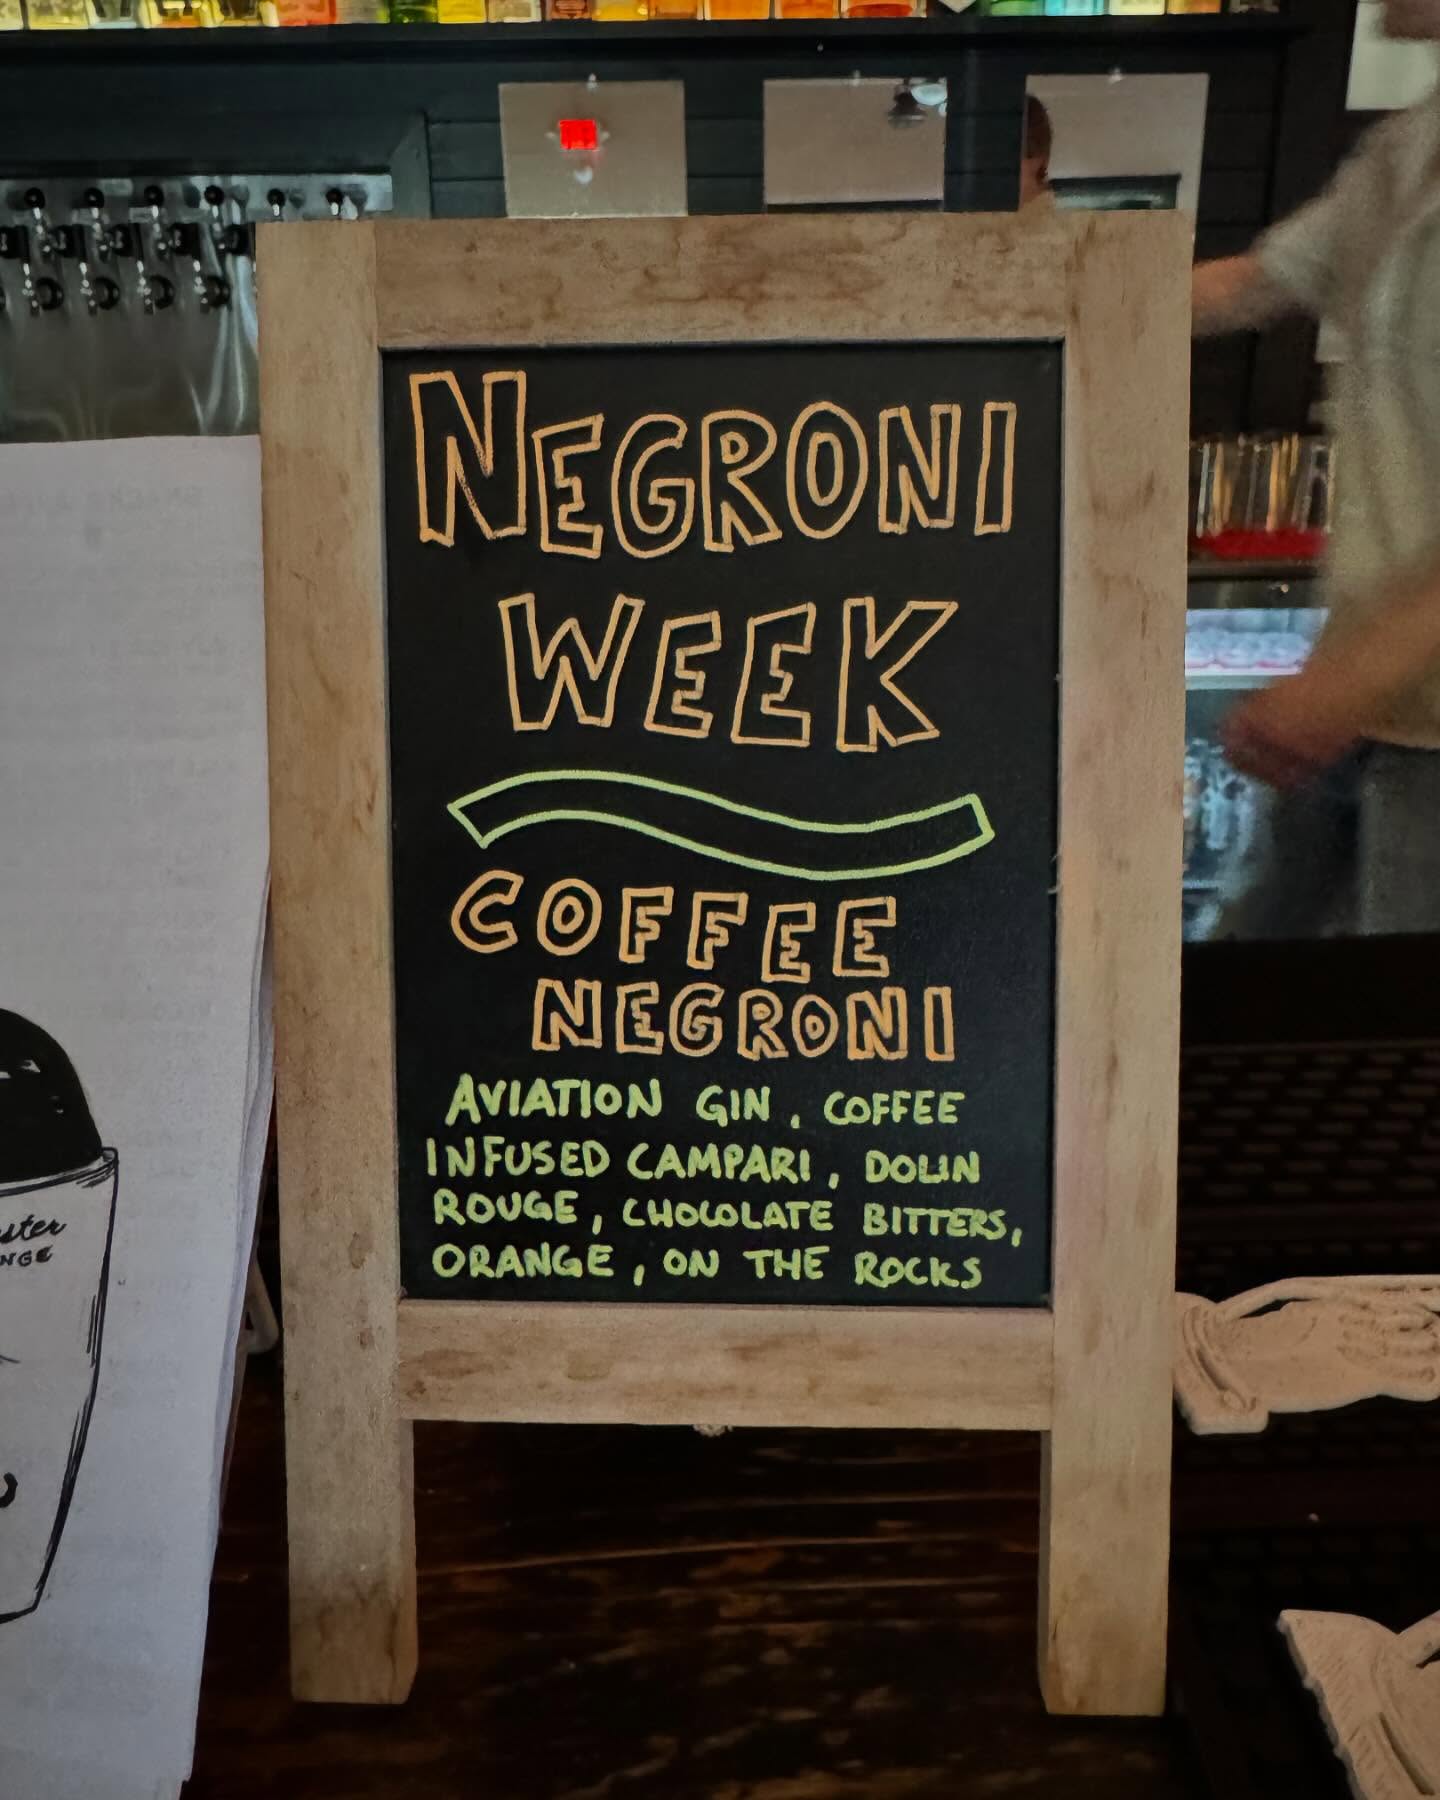 NEGRONI
WEEK
COFFEE
NEGRONI
AVIATION GIN, COFFEE
INFUSED CAMPARI, DOLIN
ROUGE, CHOCOLATE BITTERS,
ORANGE, ON THE ROCKS